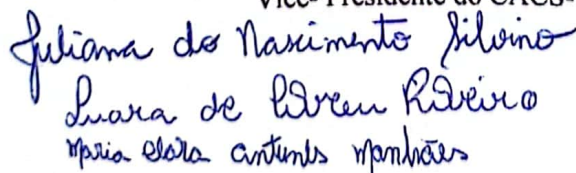 Vice- Presidente do CACS-
Juliana do Nascimento Silvino
Luara de Abreu Ribeiro
Maria Clara Antunes Manhães